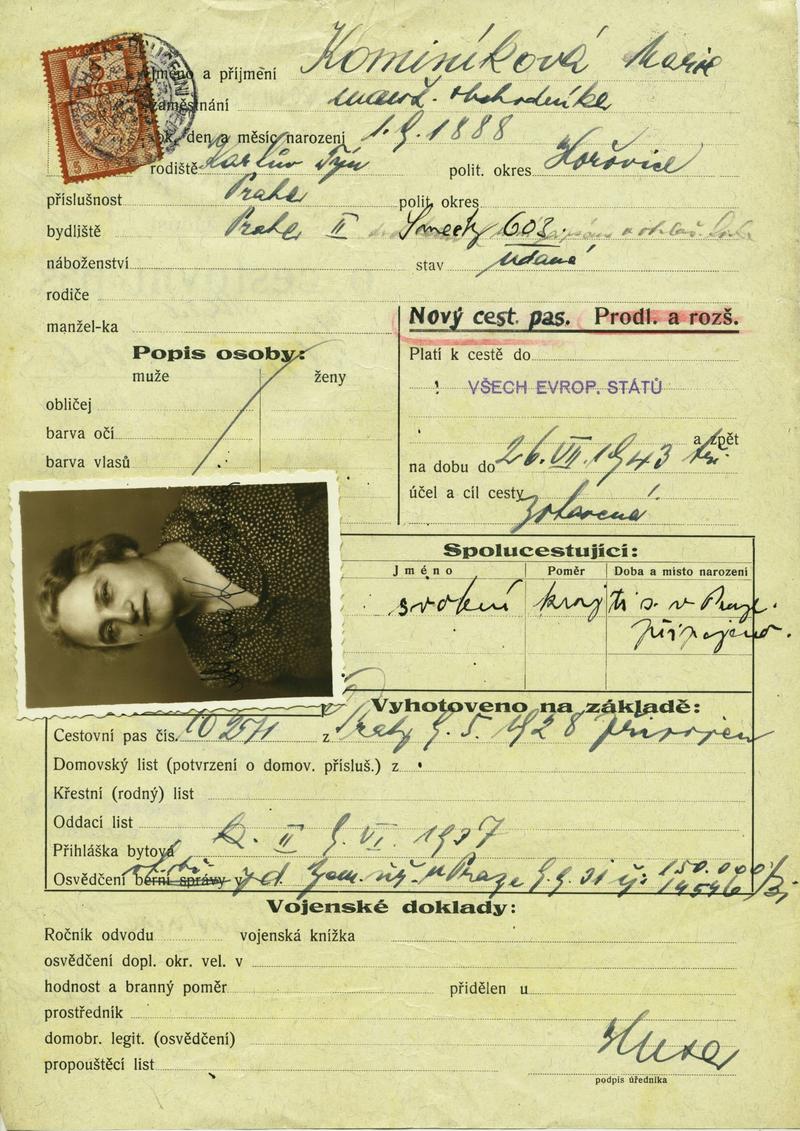 Jméno a příjmení Kominíková Marie
zaměstnání manž. obchodníka
Rok, den a měsíc narození 1.9.1888
rodiště Karlův Týn polit. okres Hořovice
příslušnost Praha polit. okres
bydliště Praha II Smečky 603.
náboženství stav vdaná
rodiče
manžel-ka
Nový cest. pas. Prodl. a rozš.
Popis osoby:
muže ženy
obličej
barva očí
barva vlasů
Platí k cestě do
VŠECH EVROP. STÁTŮ
a zpět
na dobu do 26. VII. 1943
účel a cíl cesty zotavená
Spolucestující:
Jméno Poměr Doba a místo narození
v Praze.
připojeno.
Vyhotoveno na základě:
Cestovní pas čís. z Prahy 9. 5. 1928 připojen
Domovský list (potvrzení o domov. přísluš.) z
Křestní (rodný) list
Oddací list
Přihláška bytová II 9. VI. 1937
Osvědčení berní správy v Praze
Vojenské doklady:
Ročník odvodu vojenská knížka
osvědčení dopl. okr. vel. v
hodnost a branný poměr přidělen u
prostředník
domobr. legit. (osvědčení)
propouštěcí list
podpis úředníka